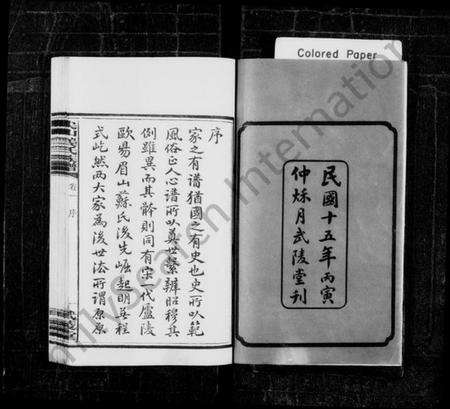 Colored Paper
民國十五年丙寅
仲秌月武陵堂刊
序
家之有谱猶國之有史也史所以範
風俗正人心谱所以奠世繫辨昭穆其
例雖異而其斡則同有宋一代廬陵
歐昜眉山蘇氏後先崛起明昱程
式屹然两大家為後世法所謂原原
卷一 序
武陵堂